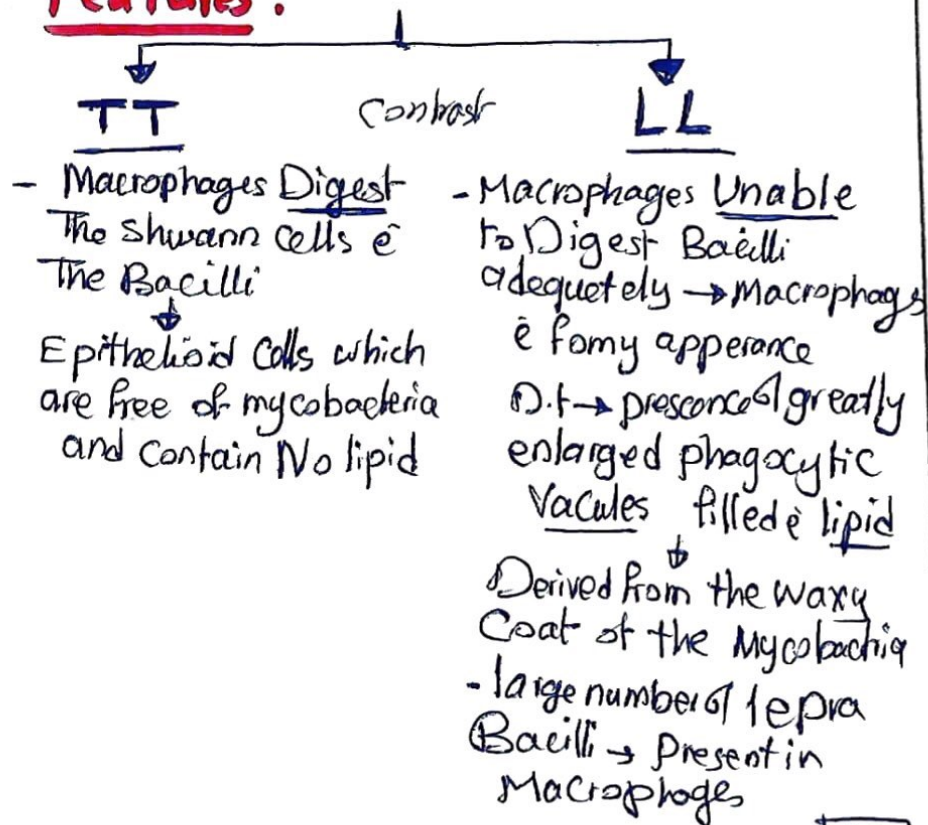 Features:
TT
Contrast
LL
- Macrophages Digest
The Shwann Cells ē
The Bacilli
Epithelioid Cells which
are free of mycobacteria
and Contain No lipid
- Macrophages Unable
to Digest Bacilli
adequetely → Macrophags
ē fomy apperance
D.t → presconce of greatly
enlarged phagocytic
Vacules filled ē lipid
Derived from the waxy
Coat of the Mycobactria
- large number of lepra
Bacilli → Present in
Macrophages